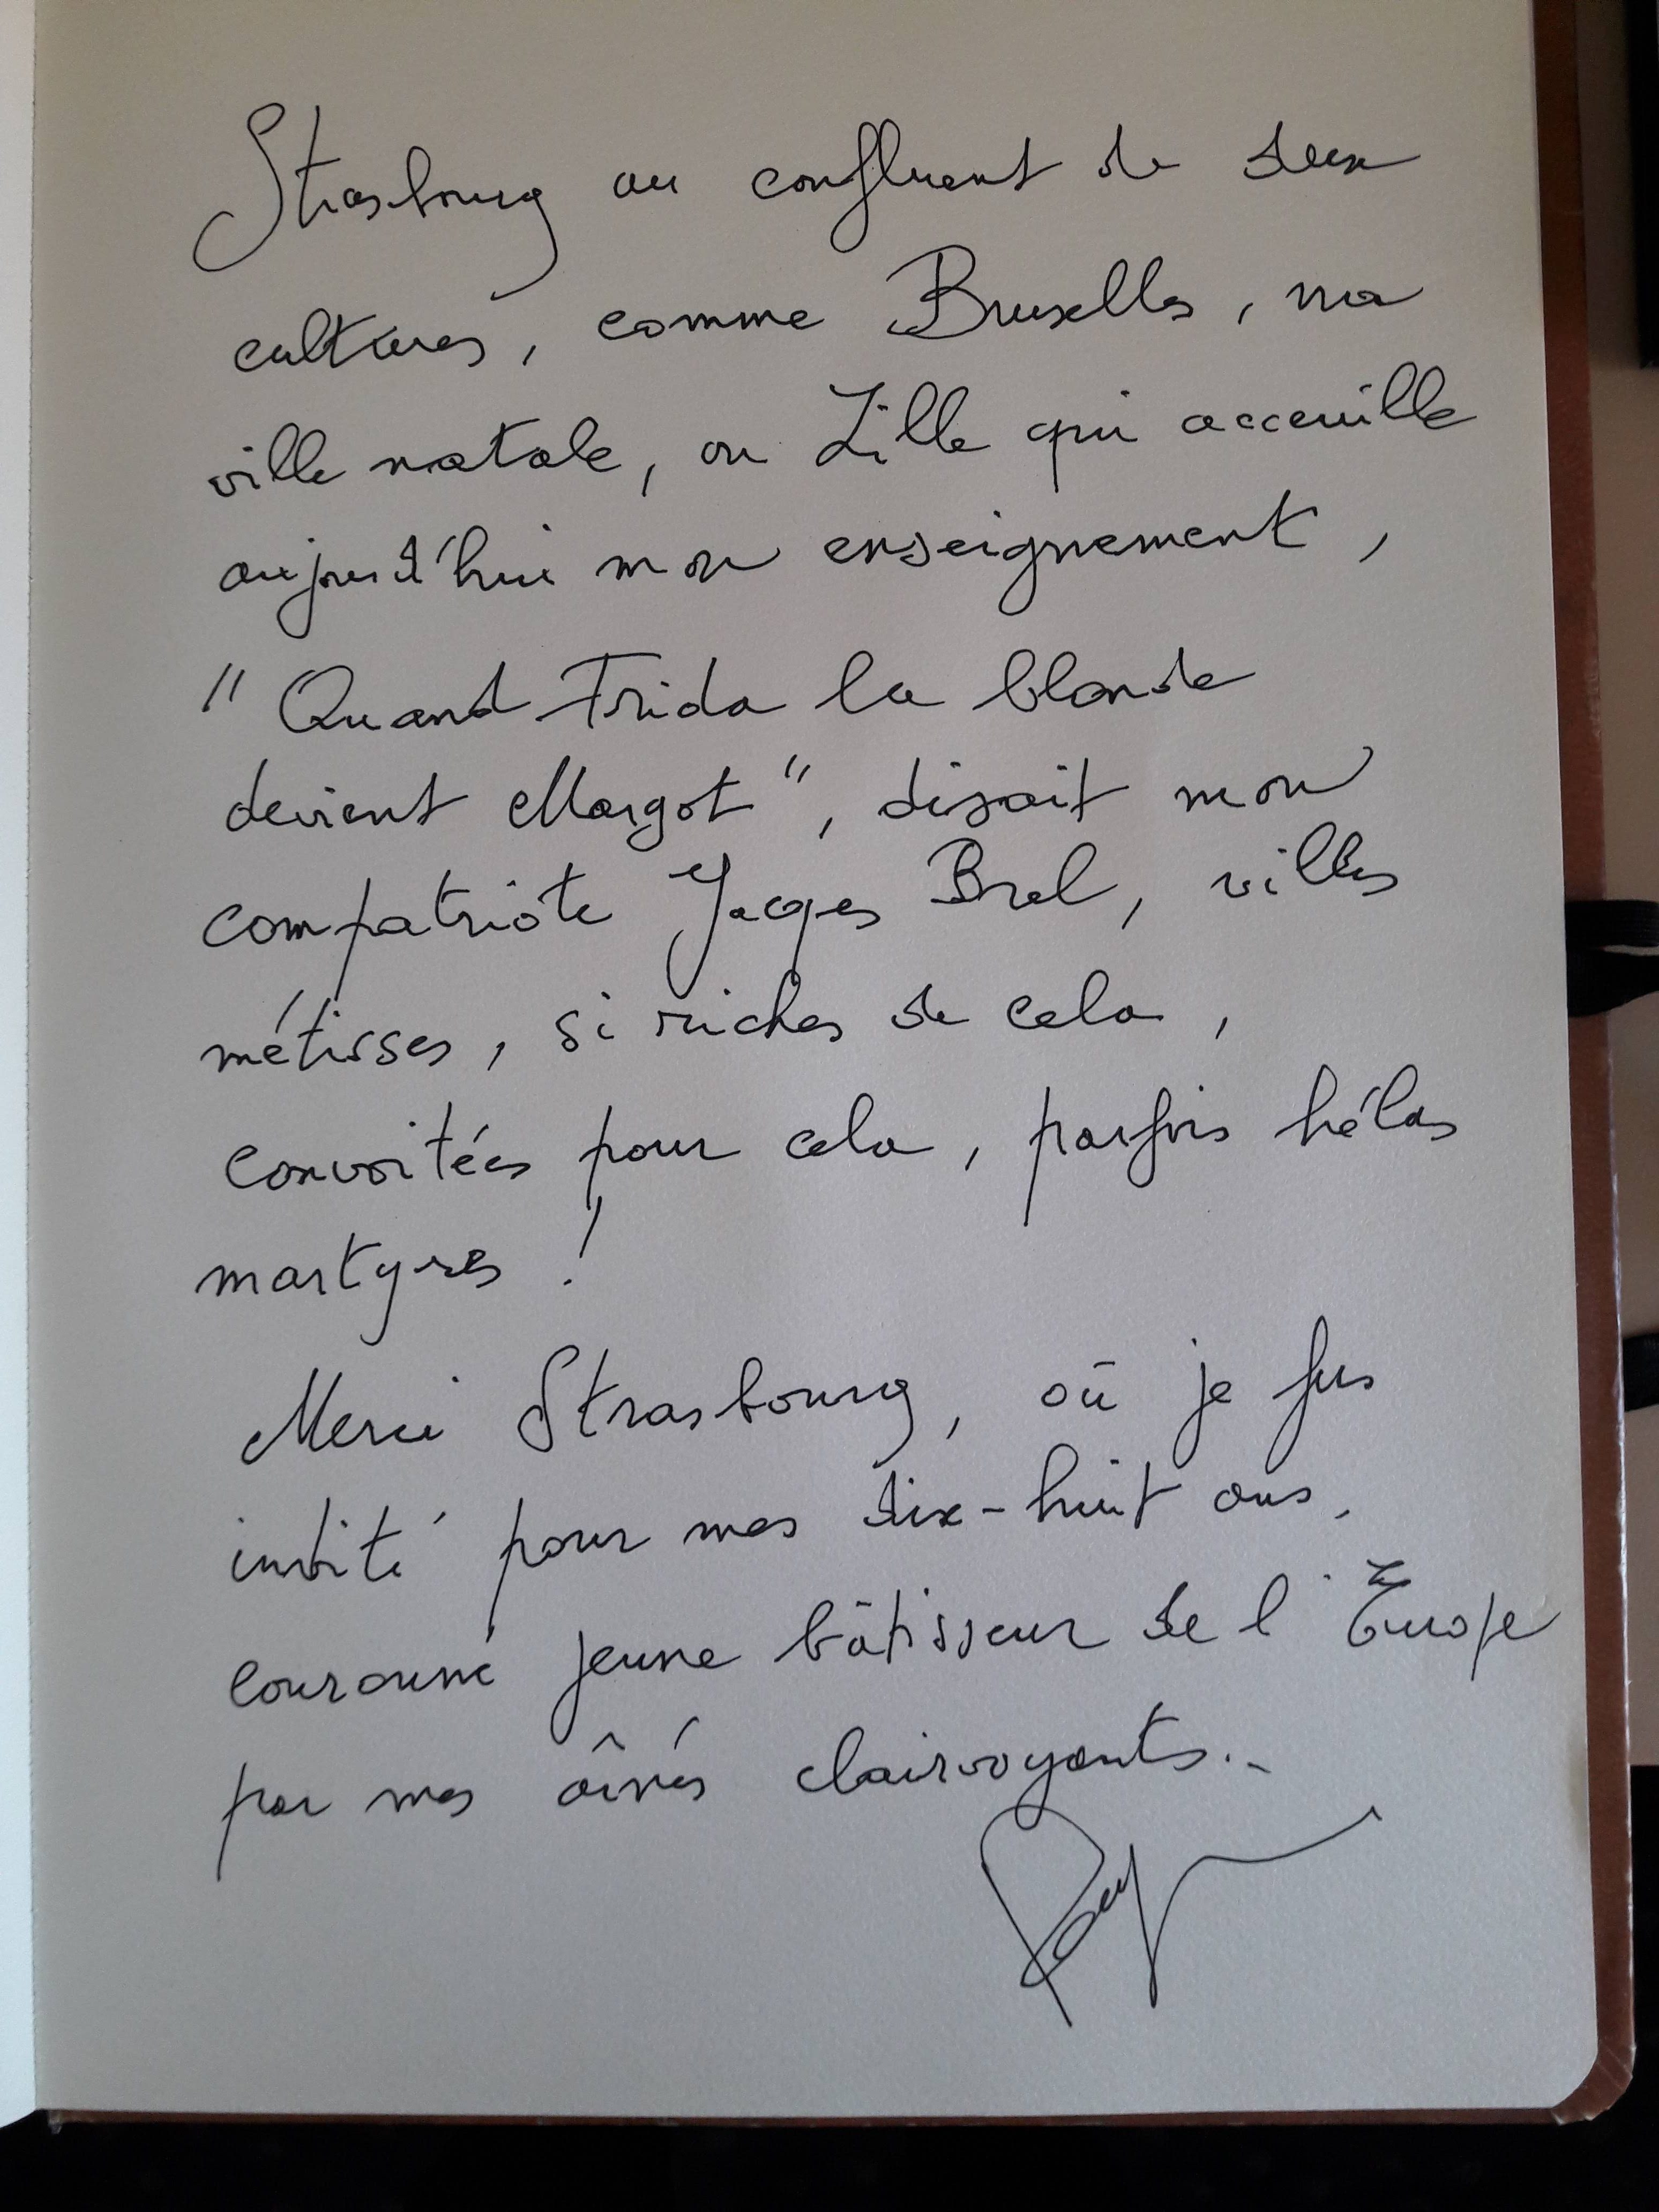 Strasbourg au confluent de deux
cultures, comme Bruxelles, ma
ville natale, ou Lille qui acceuille
aujourd'hui mon enseignement,
"Quand Frida la blonde
devient Margot", disait mon
compatriote Jacques Brel, villes
métisses, si riches de cela,
convoitées pour cela, parfois hélas
martyres !
Merci Strasbourg, où je fus
invité pour mes dix-huit ans,
couronné jeune bâtisseur de l'Europe
par mes aînés clairvoyants...